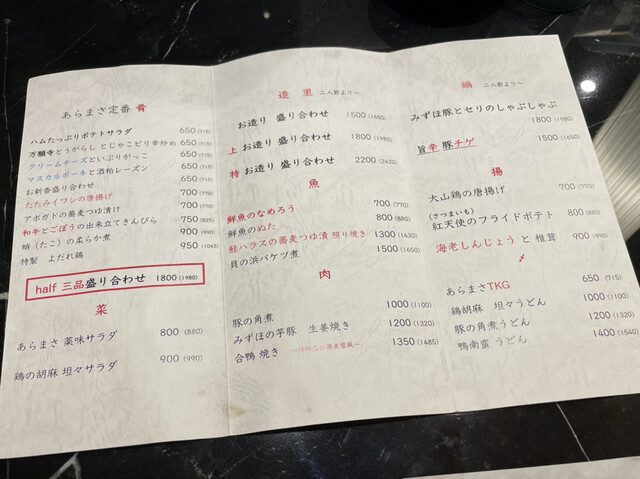 あらまさ定番 肴
ハムたっぷりポテトサラダ 650 (715)
万願寺とうがらし とじゃこピリ辛炒め 650 (715)
クリームチーズといぶりがっこ 650 (715)
マスカルポーネと酒粕レーズン 650 (715)
お新香盛り合わせ 650 (715)
たたみイワシの唐揚げ 700 (770)
アボガドの蕎麦つゆ漬け 700 (770)
和牛とごぼうの出来立てきんぴら 750 (825)
蛸（たこ）の柔らか煮 900 (990)
特製 よだれ鶏 950 (1045)
half 三品盛り合わせ 1800 (1980)
菜
あらまさ 薬味サラダ 800 (880)
鶏の胡麻 坦々サラダ 900 (990)
造里 二人前より〜
お造り 盛り合わせ 1500 (1650)
上 お造り 盛り合わせ 1800 (1980)
特 お造り 盛り合わせ 2200 (2420)
魚
鮮魚のなめろう 700 (770)
鮮魚のぬた 800 (880)
鮭ハラスの蕎麦つゆ漬 照り焼き 1300 (1430)
貝の浜バケツ煮 1500 (1650)
肉
豚の角煮 1000 (1100)
みずほの芋豚 生姜焼き 1200 (1320)
合鴨 焼き 1350 (1485)
鍋 二人前より〜
みずほ豚とセリのしゃぶしゃぶ
1800 (1980)
旨辛 豚チゲ 1500 (1650)
揚
大山鶏の唐揚げ 700 (770)
(さつまいも)
紅天使のフライドポテト 800 (880)
海老しんじょう と 椎茸 900 (990)
〆
あらまさTKG 650 (715)
鶏胡麻 坦々うどん 1000 (1100)
豚の角煮うどん 1200 (1320)
鴨南蛮 うどん 1400 (1540)